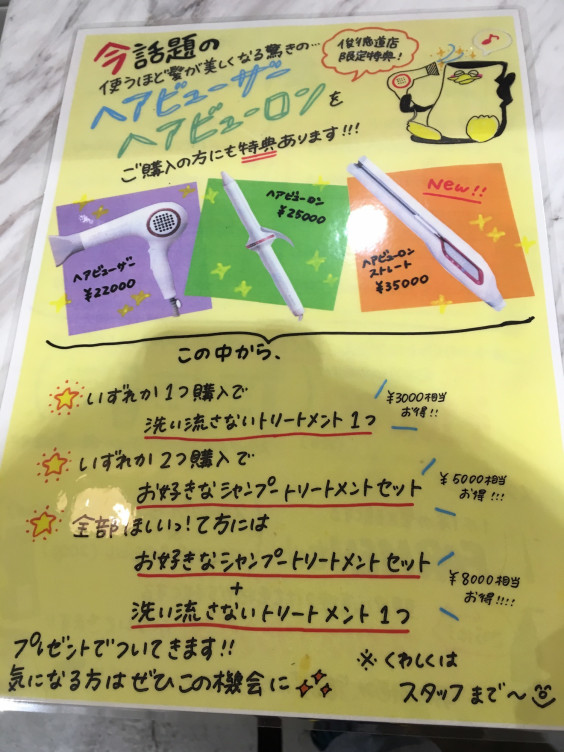 今話題の
使うほど髪が美しくなる驚きの…
ヘアビューザー
ヘアビューロンを
ご購入の方にも特典あります!!!
限定特典!
ヘアビューザー
¥22000
ヘアビューロン
¥25000
New!!
ヘアビューロン
ストレート
¥35000
この中から、
いずれか1つ購入で
洗い流さないトリートメント1つ
¥3000相当
お得!!
いずれか2つ購入で
お好きなシャンプートリートメントセット
¥5000相当
お得!!!
全部ほしいっ!て方には
お好きなシャンプートリートメントセット
+
洗い流さないトリートメント1つ
¥8000相当
お得!!!!
プレゼントでついてきます!!
気になる方はぜひこの機会に
※くわしくは
スタッフまで〜